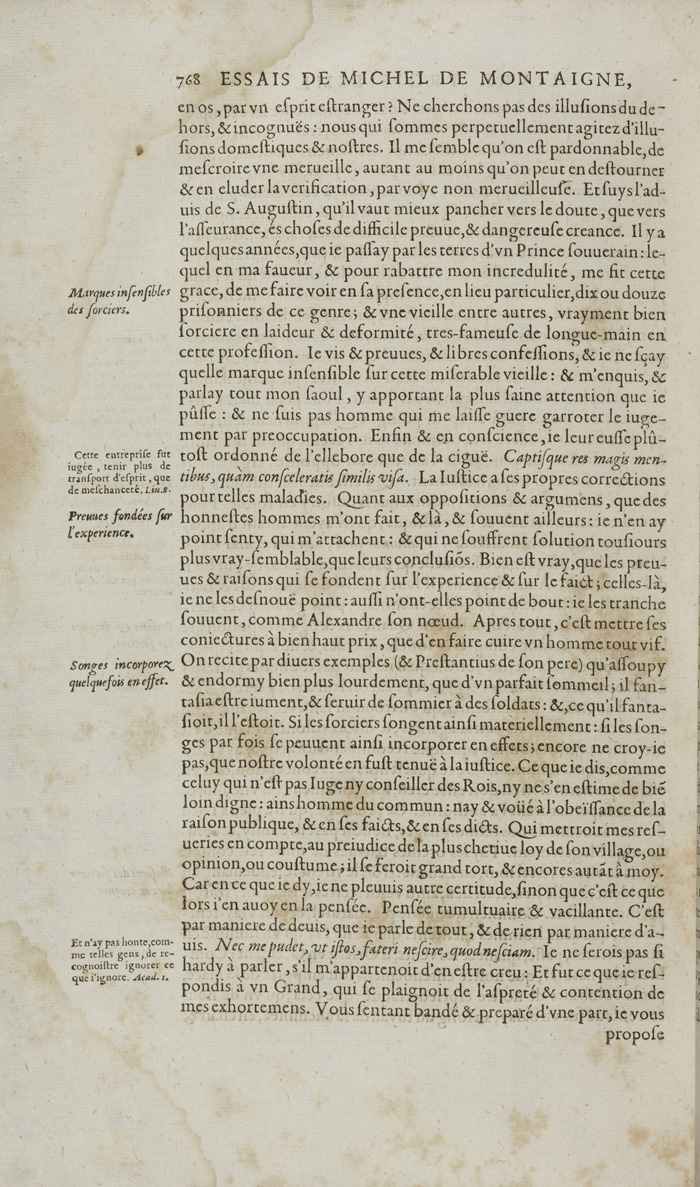 768 ESSAIS DE MICHEL DE MONTAIGNE,
en os, par vn eſprit eſtranger? Ne cherchons pas des illuſions du de-
hors, & incognuës: nous qui ſommes perpetuellement agitez d'illu-
ſions domeſtiques & noſtres. Il me ſemble qu'on eſt pardonnable, de
meſcroire vne merueille, autant au moins qu'on peut en deſtourner
& en eluder la verification, par voye non merueilleuſe. Et ſuys l'ad-
uis de S. Auguſtin, qu'il vaut mieux pancher vers le doute, que vers
l'aſſeurance, és choſes de difficile preuue, & dangereuſe creance. Il y a
quelques années, que ie paſſay par les terres d'vn Prince ſouuerain: le-
quel en ma faueur, & pour rabattre mon incredulité, me fit cette
Marques inſenſibles
des ſorciers.
grace, de me faire voir en ſa preſence, en lieu particulier, dix ou douze
priſonniers de ce genre; & vne vieille entre autres, vrayment bien
ſorciere en laideur & deformité, tres-fameuſe de longue-main en
cette profeſſion. Ie vis & preuues, & libres confeſſions, & ie ne ſçay
quelle marque inſenſible ſur cette miſerable vieille: & m'enquis, &
parlay tout mon ſaoul, y apportant la plus ſaine attention que ie
pûſſe: & ne ſuis pas homme qui me laiſſe guere garroter le iuge-
ment par preoccupation. Enfin & en conſcience, ie leur euſſe plû-
Cette entrepriſe fut
iugée, tenir plus de
tranſport d'eſprit, que
de meſchanceté. Liu. 8.
toſt ordonné de l'ellebore que de la ciguë. Captiſque res magis men-
tibus, quàm conſceleratis ſimilis viſa. La Iuſtice a ſes propres corrections
pour telles maladies. Quant aux oppoſitions & argumens, que des
Preuues fondées ſur
l'experience.
honneſtes hommes m'ont fait, & là, & ſouuent ailleurs: ie n'en ay
point ſenty, qui m'attachent: & qui ne ſouffrent ſolution touſiours
plus vray-ſemblable, que leurs concluſiõs. Bien eſt vray, que les preu-
ues & raiſons qui ſe fondent ſur l'experience & ſur le faict; celles-là,
ie ne les deſnouë point: auſſi n'ont-elles point de bout: ie les tranche
ſouuent, comme Alexandre ſon nœud. Apres tout, c'eſt mettre ſes
coniectures à bien haut prix, que d'en faire cuire vn homme tout vif.
Songes incorporez
quelquefois en effet.
On recite par diuers exemples (& Preſtantius de ſon pere) qu'aſſoupy
& endormy bien plus lourdement, que d'vn parfait ſommeil; il fan-
taſia eſtre iument, & ſeruir de ſommier à des ſoldats: &, ce qu'il fanta-
ſioit, il l'eſtoit. Si les ſorciers ſongent ainſi materiellement: ſi les ſon-
ges par fois ſe peuuent ainſi incorporer en effets; encore ne croy-ie
pas, que noſtre volonté en fuſt tenuë à la iuſtice. Ce que ie dis, comme
celuy qui n'eſt pas Iuge ny conſeiller des Rois, ny ne s'en eſtime de biẽ
loin digne: ains homme du commun: nay & voüé à l'obeïſſance de la
raiſon publique, & en ſes faicts, & en ſes dicts. Qui mettroit mes reſ-
ueries en compte, au preiudice de la plus chetiue loy de ſon village, ou
opinion, ou couſtume; il ſe feroit grand tort, & encores autãt à moy.
Car en ce que ie dy, ie ne pleuuis autre certitude, ſinon que c'eſt ce que
lors i'en auoy en la penſée. Penſée tumultuaire & vacillante. C'eſt
par maniere de deuis, que ie parle de tout, & de rien par maniere d'a-
Et n'ay pas honte, com-
me telles gens, de re-
cognoiſtre ignorer ce
que i'ignore. Acad. 1.
uis. Nec me pudet, vt iſtos, fateri neſcire, quod neſciam. Ie ne ſerois pas ſi
hardy à parler, s'il m'appartenoit d'en eſtre creu: Et fut ce que ie reſ-
pondis à vn Grand, qui ſe plaignoit de l'aſpreté & contention de
mes exhortemens. Vous ſentant bandé & preparé d'vne part, ie vous
propoſe